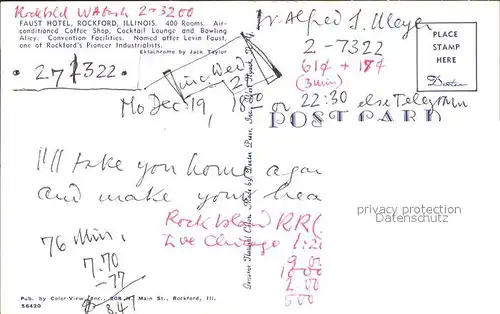 Rockford WAbash 2-3200
FAUST HOTEL, ROCKFORD, ILLINOIS. 400 Rooms. Air-
conditioned Coffee Shop, Cocktail Lounge and Bowling
Alley. Convention Facilities. Named after Levin Faust,
one of Rockford's Pioneer Industrialists.
Ektachrome by Jack Taylor
Alfred J. Meyer
2-7322
61¢ + 18¢
(3min)
PLACE
STAMP
HERE
Dexter
277322
inc Wed
Mo Dec 19, 1800 or 22:30 else Telegram
POST CARD
I'll take you home again
and make your
privacy protection
Datenschutz
Rock Island RR
Lve Chicago
9 00
2 00
5 00
76 Min,
7.70
-77
8.47
Pub. by Color-View, Inc., 208 N. Main St., Rockford, Ill.
56420